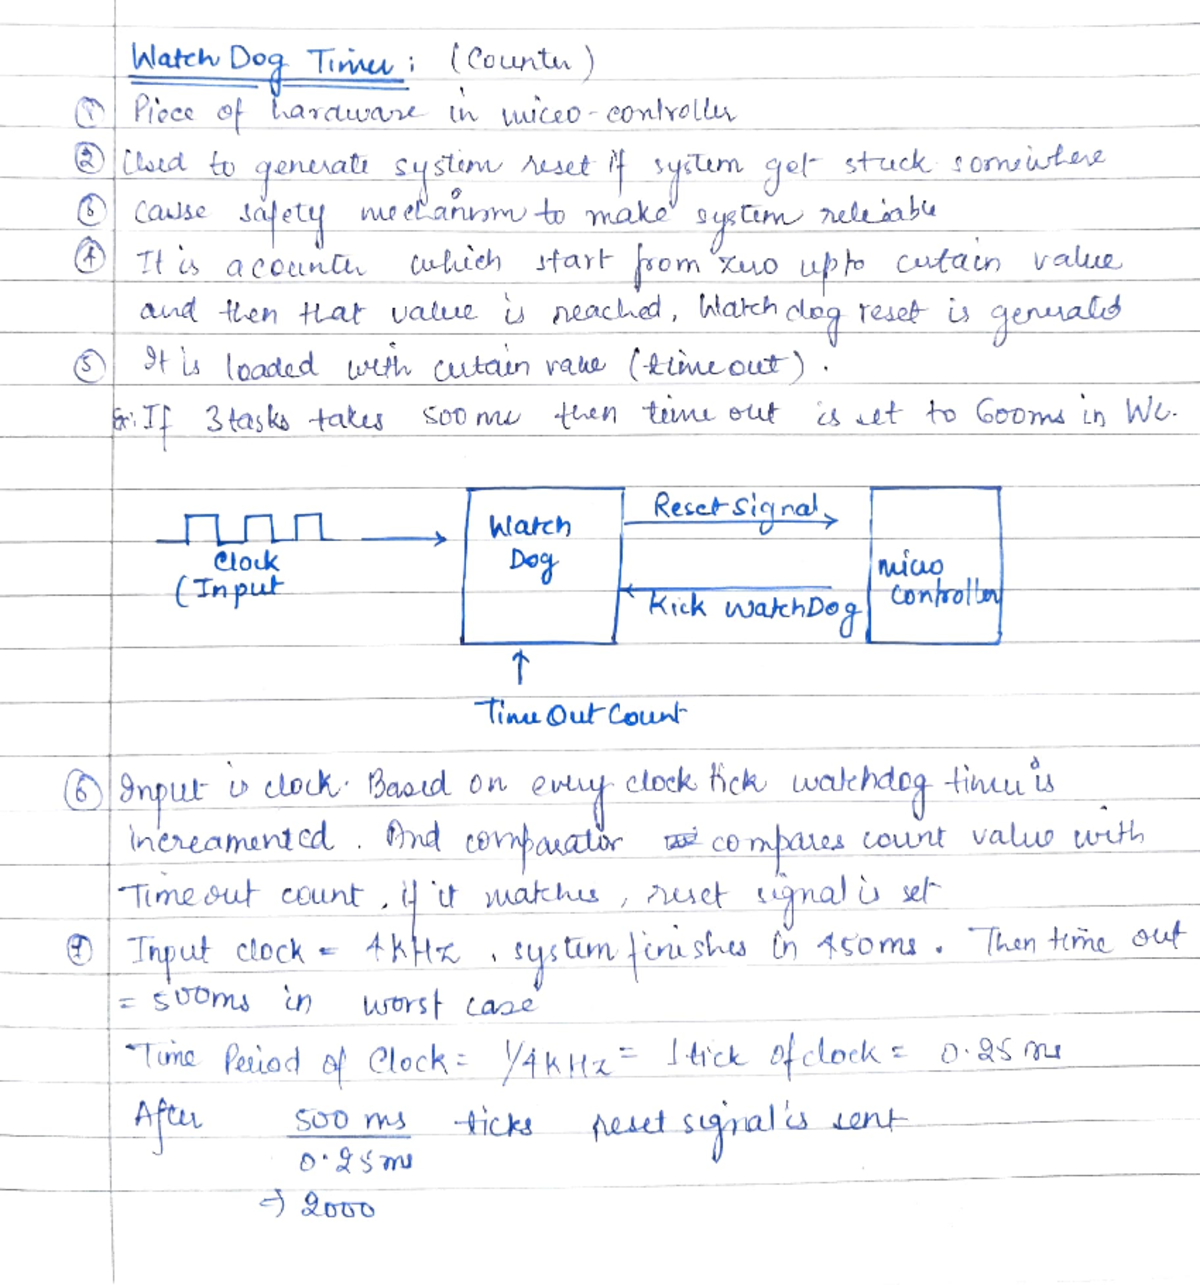 Watch Dog Timer : (Counter)
① Piece of hardware in micro-controller
② Used to generate system reset if system get stuck somewhere
③ Cause safety mechanism to make system releiable
④ It is a counter which start from zero upto certain value
and then that value is reached, Watch dog reset is generated
⑤ It is loaded with certain value (time out).
Ex: If 3 tasks takes 500 ms then time out is set to 600ms in WC.
Clock
(Input
Watch
Dog
Reset Signal
Kick WatchDog
micro
controller
Time Out Count
⑥ Input is clock. Based on every clock tick watchdog timer is
increamented. And comparator compares count value with
Time out count, if it matches, reset signal is set
⑦ Input clock = 4kHz, system finishes in 450ms. Then time out
= 500ms in worst case
Time Period of Clock = 1/4kHz = 1 tick of clock = 0.25 ms
After 500 ms / 0.25ms ticks reset signal is sent
⇒ 2000